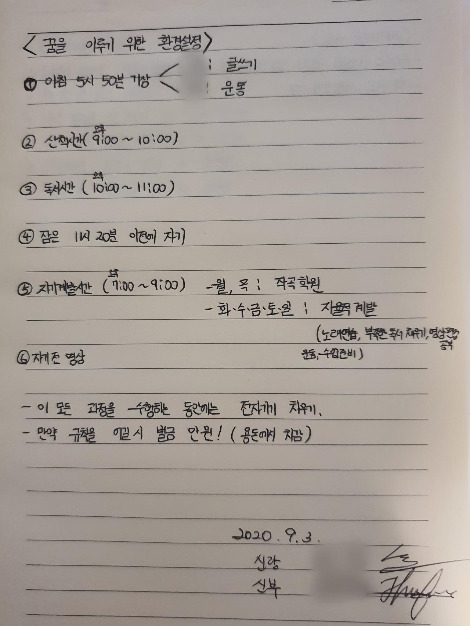 <꿈을 이루기 위한 환경설정>
① 아침 5시 50분 기상 < : 글쓰기
: 운동
② 산책시간(오후 9:00 ~ 10:00)
③ 독서시간 (오후 10:00 ~ 11:00)
④ 잠은 11시 20분 이전에 자기
⑤ 자기계발시간 (오후 7:00 ~ 9:00) - 월, 목 : 작곡학원
- 화·수·금·토·일 : 자율적 계발
(노래연습, 부족한 독서 채우기, 영상편집 공부
운동, 수업준비)
⑥ 자기전 명상
- 이 모든 과정을 수행하는 동안에는 전자기기 치우기.
- 만약 규칙을 어길 시 벌금 만원! (용돈에서 차감)
2020. 9. 3.
신랑
신부